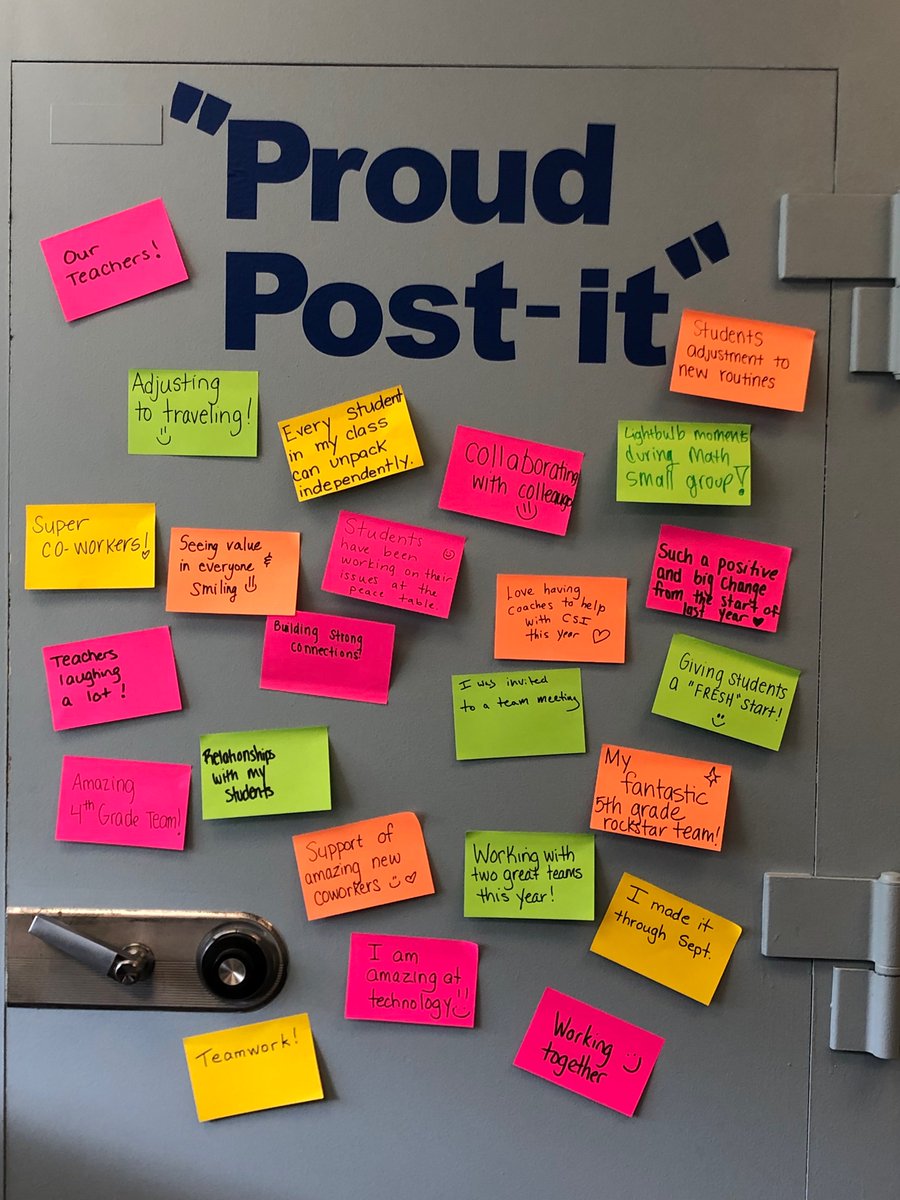 "Proud
Post-it"
Our
Teachers!
Students
adjustment to
new routines
Adjusting
to traveling!
Every Student
in my class
can unpack
independently.
Collaborating
with colleags
Lightbulb moments
during Math
small group!
Super
co-workers!
Seeing value
in everyone &
Smiling
Students
have been
working on their
issues at the
peace table.
Such a positive
and big change
from the start of
last year
Love having
coaches to help
with CSI
this year
Building Strong
connections!
Teachers
laughing
a lot!
Giving students
a "FRESH" start!
I was invited
to a team meeting
Relationships
with my
students
Amazing
4th Grade Team!
My
fantastic
5th grade
rockstar team!
Support of
amazing new
coworkers
Working with
two great teams
this year!
I made it
through Sept.
I am
amazing at
technology
Working
together
Teamwork!